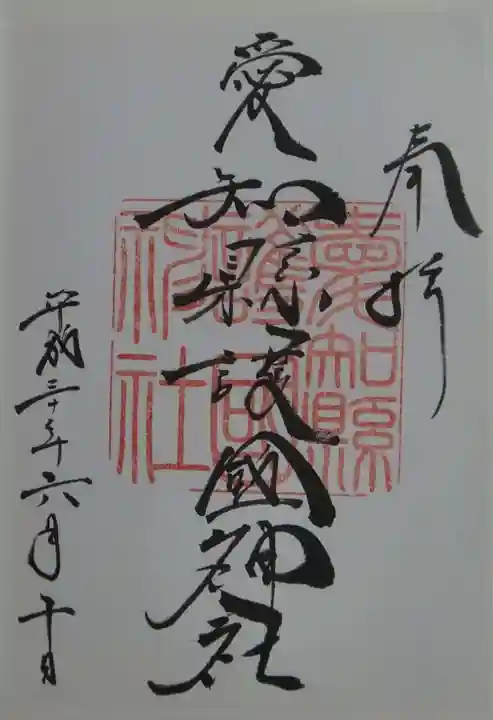 奉拝
愛知縣護國神社
愛知縣護國神社
平成三十年六月十日